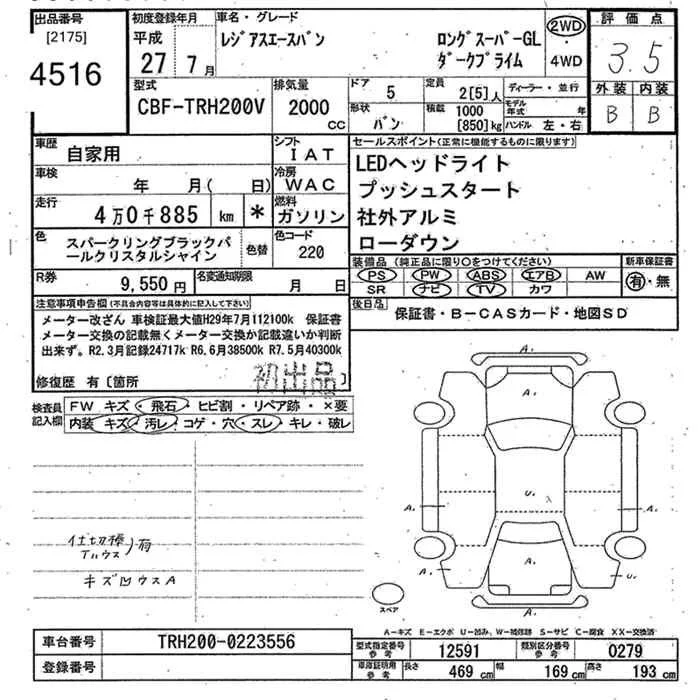 出品番号
[2175]
4516
初度登録年月
平成
27 7月
車名・グレード
レジアスエースバン
ロングスーパーGL
ダークプライム
2WD
・
4WD
評価点
3.5
外装 内装
B B
型式
CBF-TRH200V
排気量
2000
CC
ドア
5
形状
バン
定員
2[5]人
積載
1000
[850]kg
ディーラー・並行
モデル年式 年
ハンドル 左・右
車歴
自家用
シフト
IAT
車検
年 月( 日)
冷房
WAC
走行
4万0千885 km *
燃料
ガソリン
色
スパークリングブラックパ
ールクリスタルシャイン
色替
色コード
220
R券
9,550円
名変通知期限
月 日
セールスポイント(正常に機能するものに限ります)
LEDヘッドライト
プッシュスタート
社外アルミ
ローダウン
装備品(純正品に限り○をつけてください)
PS PW ABS エアB AW
SR ナビ TV カワ
新車保証書
有・無
後日品
保証書・B-CASカード・地図SD
注意事項申告欄(不具合内容等は具体的に記入して下さい)
メーター改ざん 車検証最大値H29年7月112100k 保証書
メーター交換の記載無くメーター交換か記載違いか判断
出来ず。R2.3月記録24717k R6.6月38500k R7.5月40300k
修復歴 有〔箇所
初出品
検査員
記入欄
FW キズ・飛石・ヒビ割・リペア跡・×要
内装 キズ・汚レ・コゲ・穴・スレ・キレ・破レ
仕切棒
アルウス
有
キズ凹ウスA
A.
A.
A.
U.
A.
A.
A.
U.
A.
スペア
A-キズ E-エクボ U-凹み W-補修跡 S-サビ C-腐食 XX-交換済
車台番号
TRH200-0223556
登録番号
型式指定番号
参考
12591
類別区分番号
参考
0279
車庫証明用
参考
長さ
469 cm
幅
169 cm
高さ
193 cm